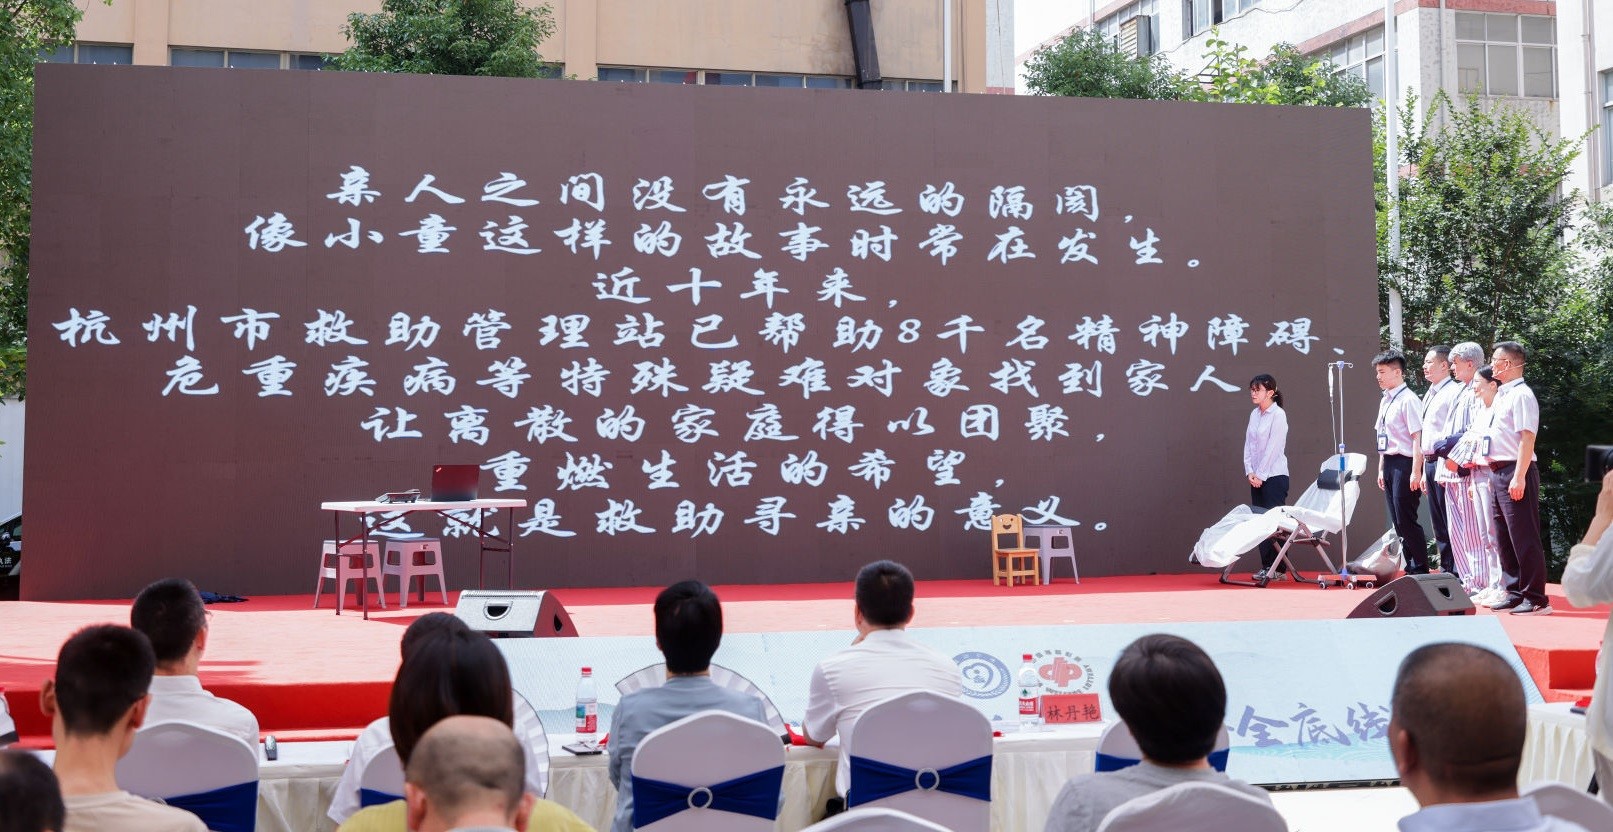 亲人之间没有永远的隔阂，
像小童这样的故事时常在发生。
近十年来，
杭州市救助管理站已帮助8千名精神障碍、
危重疾病等特殊疑难对象找到家人
让离散的家庭得以团聚，
重燃生活的希望，
这就是救助寻亲的意义。
林丹艳
全底线